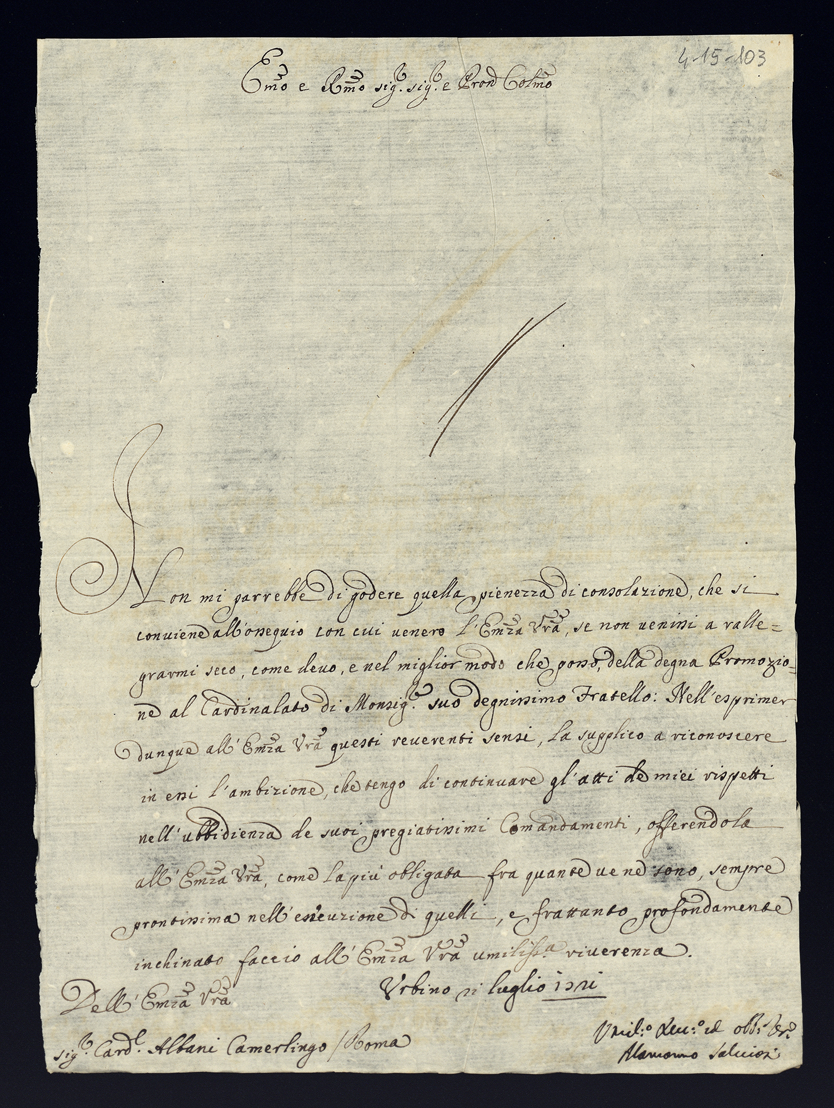 4-15-103
Em̃o e Rm̃o sig.r sig.r e Pron̄ Colm̃o
Non mi parrebbe di godere quella pienezza di consolazione, che si
conviene all'ossequio con cui venero l'Em̃za Vr̃a, se non venissi a ralle=
grarmi seco, come devo, e nel miglior modo che posso, della degna Promozio=
ne al Cardinalato di Monsig.r suo degnissimo Fratello: Nell'esprimer
dunque all'Em̃za Vr̃a questi reverenti sensi, la supplico a riconoscere
in essi l'ambizione, che tengo di continuare gl'atti de miei rispetti
nell'ubbidienza de suoi pregiatissimi Comandamenti, offerendola
all'Em̃za Vr̃a, come la più obligata fra quante ve ne sono, sempre
prontissima nell'esecuzione di quelli, e frattanto profondamente
inchinato faccio all'Em̃za Vr̃a umiliss.a riverenza.
Dell'Em̃za Vr̃a
Urbino luglio
sig.r Card.l Albani Camerlingo / Roma